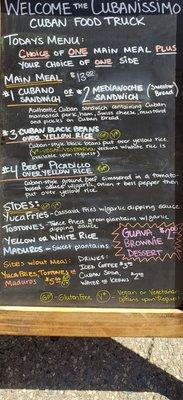 WELCOME THE CUBANÍSSIMO
CUBAN FOOD TRUCK
TODAY'S MENU:
CHOICE OF ONE MAIN MEAL PLUS
YOUR CHOICE OF ONE SIDE
MAIN MEAL $13.00
#1 CUBANO SANDWICH OR #2 MEDIANOCHE SANDWICH (Sweeter Bread)
Authentic Cuban sandwich containing Cuban
marinated pork, ham, Swiss cheese, mustard
and pickles on Cuban Bread
#3 CUBAN BLACK BEANS
OVER YELLOW RICE
Cuban-style black beans put over yellow rice
white rice is
available upon request
#4 BEEF PICADILLO
OVER YELLOW RICE
Cuban-style ground beef simmered in a tomato-
based sauce w/garlic, onion + bell pepper then
over yellow rice
SIDES:
YUCA FRIES - Cassava Fries w/garlic dipping sauce
TOSTONES - Twice fried green plantains w/garlic
dipping sauce
YELLOW OR WHITE RICE
MADUROS - Sweet plantains
GUAVA
BROWNIE
DESSERT
SIDES w/out MEAL:
YUCA FRIES, TOSTONES
MADUROS $5.00
DRINKS:
ICED COFFEE
CUBAN SODA
WATER OR KEANS
GF - Gluten Free
V - Vegan or Vegetarian
Options upon Request